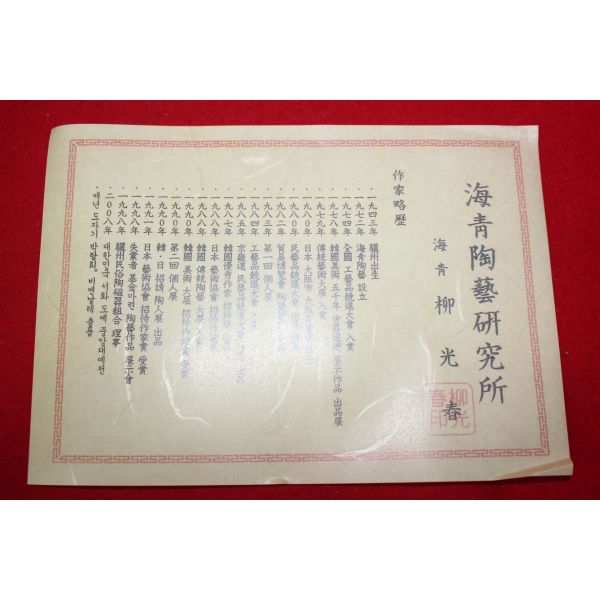 海青陶藝硏究所
海青 柳光春
柳光
春印
作家略歷
・一九四三年 驪州出生
・一九七二年 海青陶藝 設立
・一九七四年 全國 工藝品競選大會 入賞
・一九七八年 韓國美術 五千年 展示作品 出品展
・一九七九年 傳統藝術大展 入賞
・一九八〇年 日本 大阪市
・一九八〇年 民藝品競選大會
・一九八二年 貿易博覽會
・一九八三年 第一回 個人展
・一九八四年 工藝品競選大會
・一九八五年 京畿道 民藝品競選大會
・一九八七年 韓國優秀作家 招待
・一九八八年 日本 藝術協會 招待
・一九八八年 韓國 傳統陶藝 大展
・一九九〇年 韓國 美術 大展 招待作家 受賞
・一九九〇年 第二回 個人展
・一九九〇年 韓・日 招請 陶人展 出品
・一九九一年 日本 藝術協會 招待作家賞 受賞
・一九九八年 失業者 基金마련 陶藝作品 展示會
・一九九八年 驪州民俗陶磁器組合 理事
・二〇〇八年 대한민국 서화 도예 중앙대예전
・매년 도자기 박람회, 비엔날레 출품